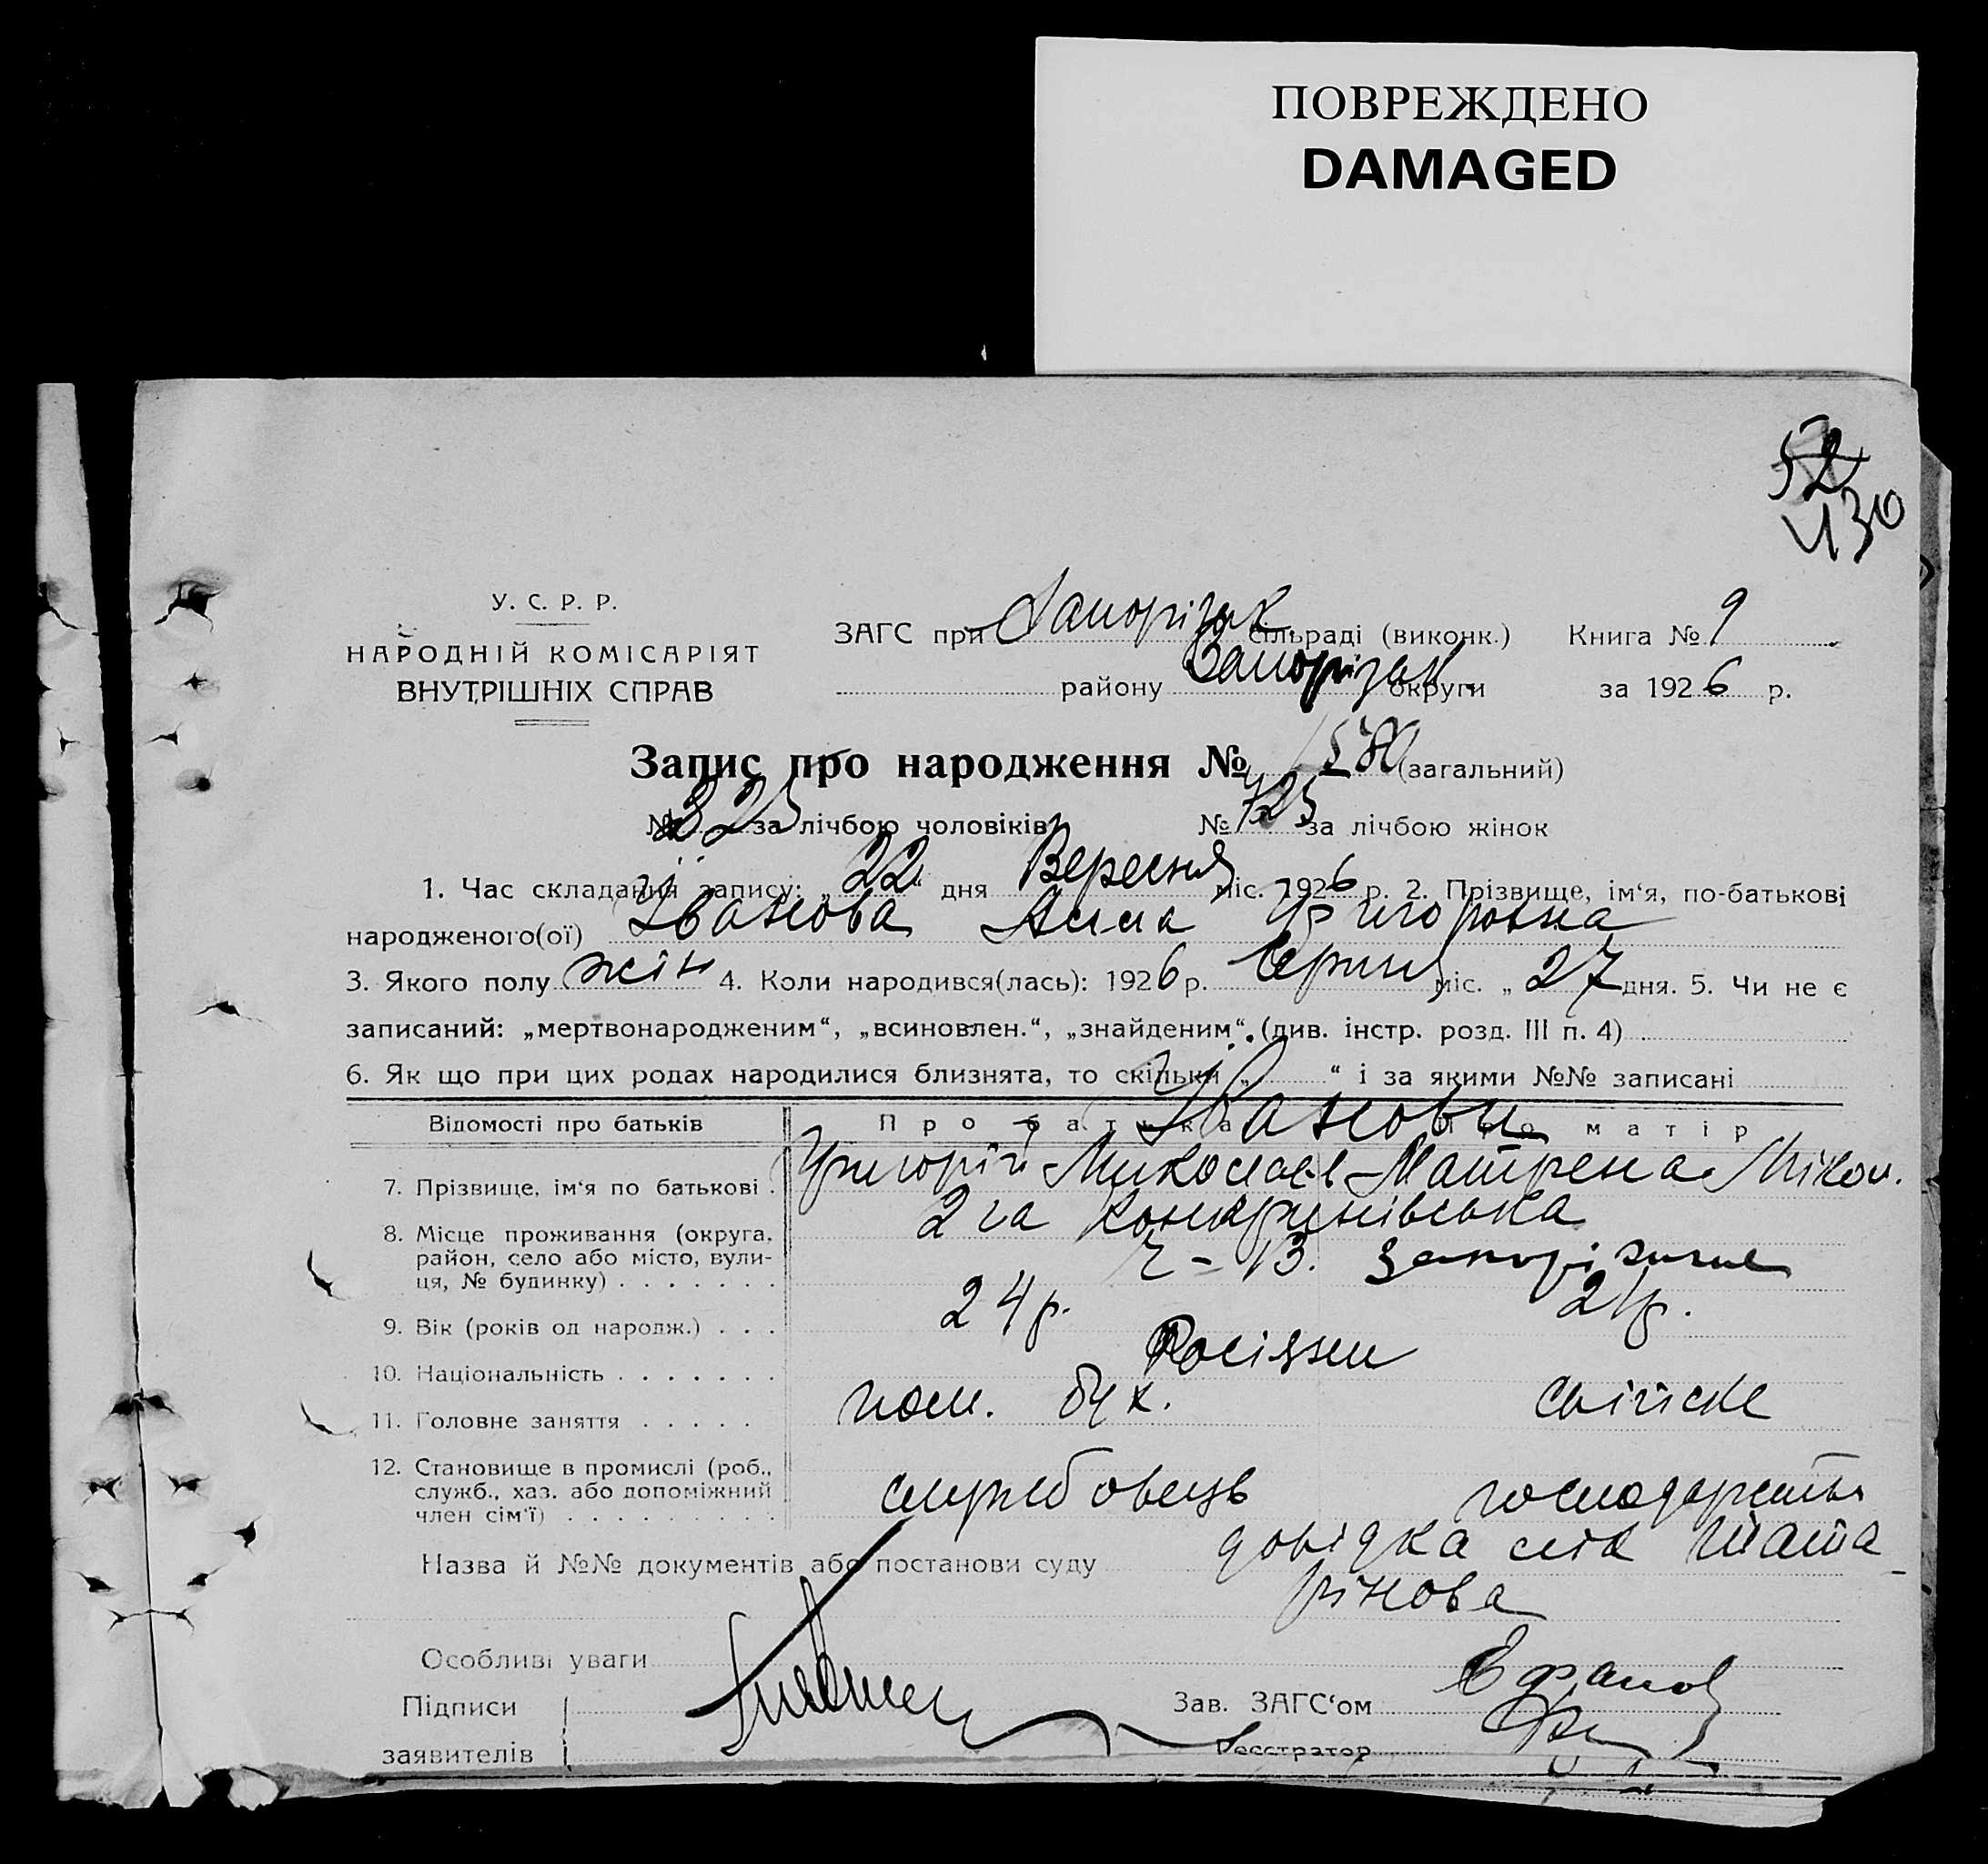 ПОВРЕЖДЕНО
DAMAGED
52
430
У. С. Р. Р.
НАРОДНІЙ КОМІСАРІЯТ
ВНУТРІШНІХ СПРАВ
ЗАГС при Запорізьк. сільраді (виконк.) Книга № 9
району Запорізьк. округи за 1926 р.
Запис про народження № 1580 (загальний)
№ за лічбою чоловіків № 725 за лічбою жінок
1. Час складання запису: „22“ дня Вересня міс. 1926 р. 2. Прізвище, ім‘я, по-батькові
народженого(ої) Іванова Анна Григоровна
3. Якого полу жін 4. Коли народився(лась): 1926 р. Серпня міс. „27 дня. 5. Чи не є
записаний: „мертвонародженим“, „всиновлен.“, „знайденим“. (див. інстр. розд. III п. 4)
6. Як що при цих родах народилися близнята, то скільки „ “ і за якими №№ записані
Відомості про батьків Про батька Про матір
Іванови
7. Прізвище, ім‘я по батькові . Григорій Миколаєв Матрена Мікол.
8. Місце проживання (округа, 2га
район, село або місто, вули-
ця, № будинку) . . . . . . . 13. Запоріжжя
9. Вік (років од народж.) . . . 24 р. 21 р.
10. Національність . . . . . . . Росіяни
11. Головне заняття . . . . . пом. бух. хатнє
12. Становище в промислі (роб.,
служб., хаз. або допоміжний службовець господарство
член сім‘ї) . . . . . . . . .
Назва й №№ документів або постанови суду довідка лік Шата-
рінова
Особливі уваги
Підписи Зав. ЗАГС‘ом
заявителів Реєстратор